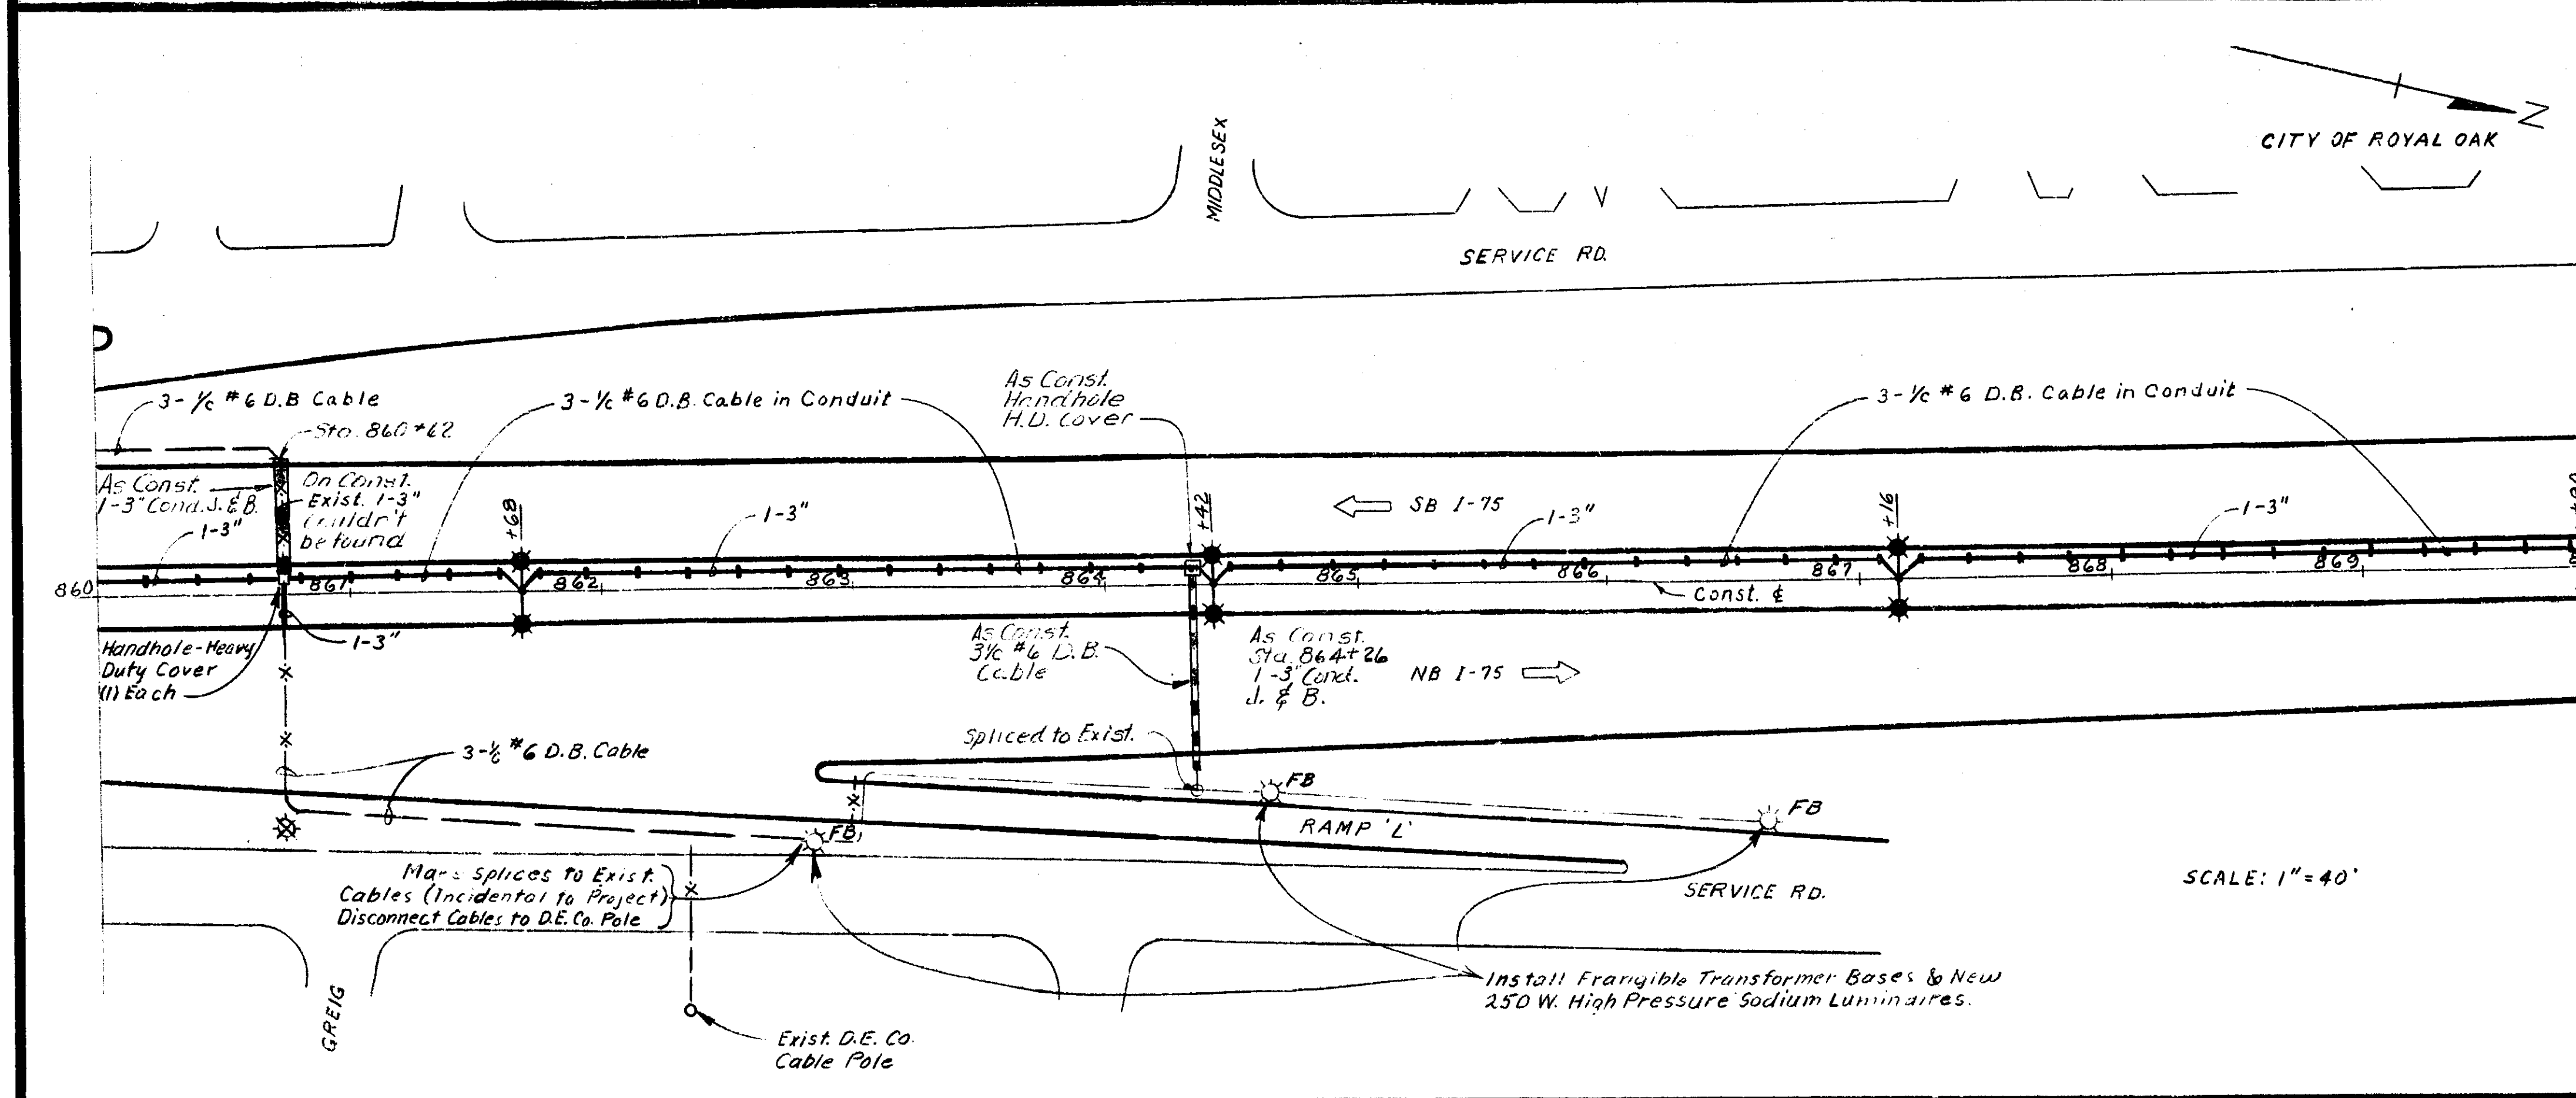 N
CITY OF ROYAL OAK
MIDDLESEX
SERVICE RD.
3-1/c #6 D.B Cable
Sta. 860+62
3-1/c #6 D.B. Cable in Conduit
As Const.
Handhole
H.D. Cover
3-1/c #6 D.B. Cable in Conduit
As Const.
1-3" Cond. J. & B.
On Const.
Exist. 1-3"
Couldn't
be found
1-3"
+68
1-3"
+42
SB I-75
1-3"
+16
1-3"
860
861
862
863
864
865
866
867
868
869
Const. ℄
Handhole-Heavy
Duty Cover
(1) Each
1-3"
As Const.
3 1/c #6 D.B.
Cable
As Const.
Sta. 864+26
1-3" Cond.
J. & B.
NB I-75
Spliced to Exist.
3-1/c #6 D.B. Cable
FB
FB
FB
RAMP 'L'
Splices to Exist.
Cables (Incidental to Project)
Disconnect Cables to D.E. Co. Pole
SERVICE RD.
SCALE: 1"=40'
GREIG
Install Frangible Transformer Bases & New
250 W. High Pressure Sodium Luminaires.
Exist. D.E. Co.
Cable Pole